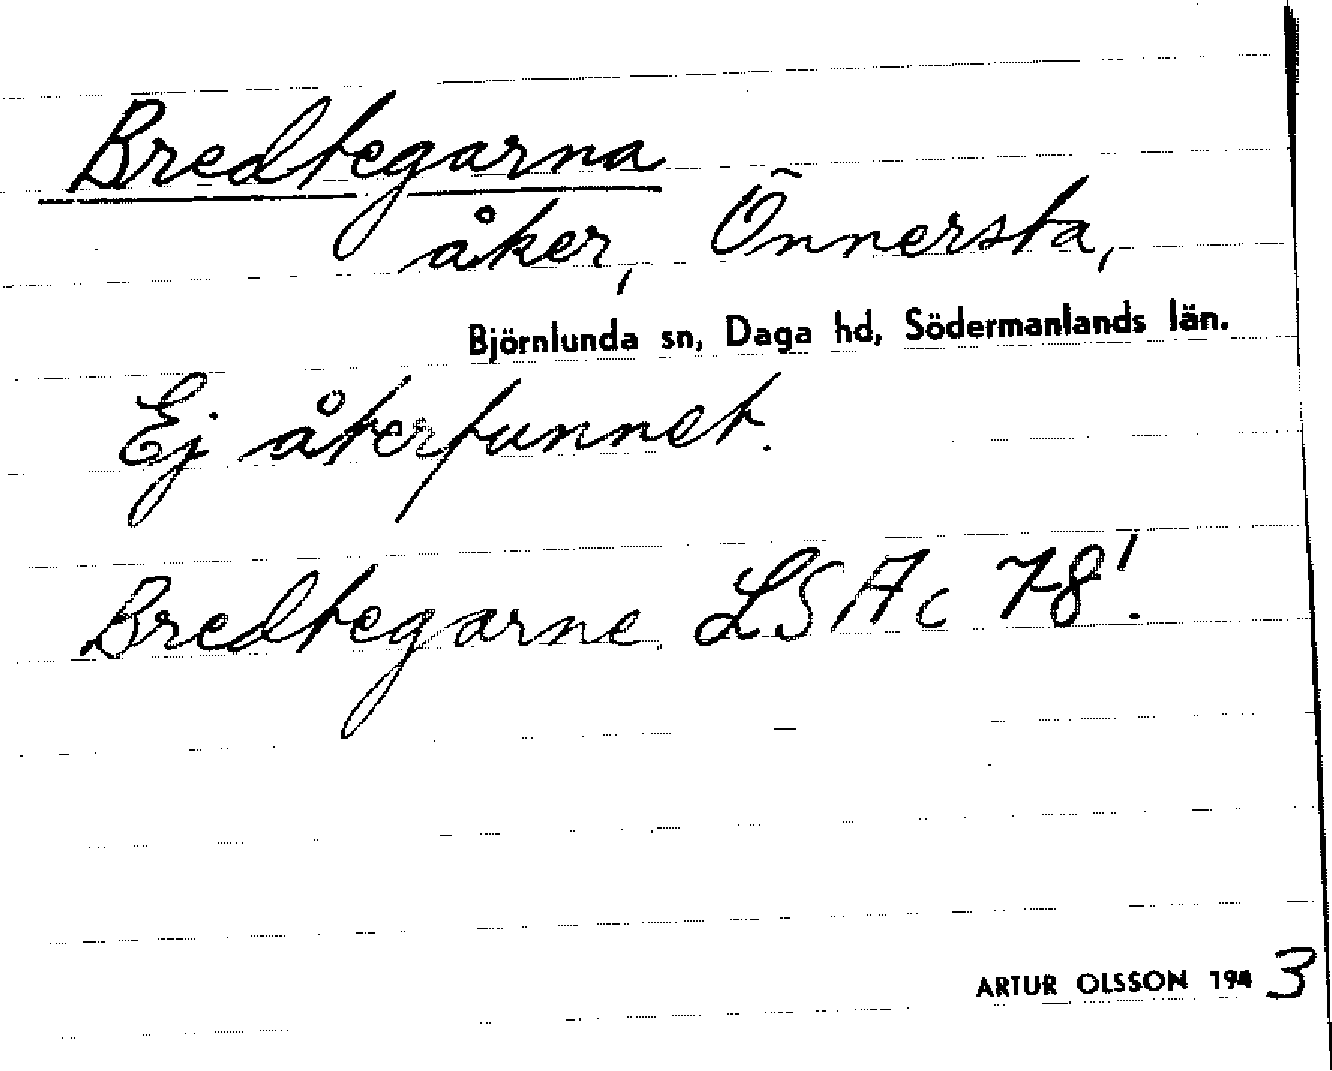 Bredtegarna
åker, Önnersta,
Björnlunda sn, Daga hd, Södermanlands län.
Ej återfunnet.
Bredtegarne LSA c 78!
ARTUR OLSSON 1943